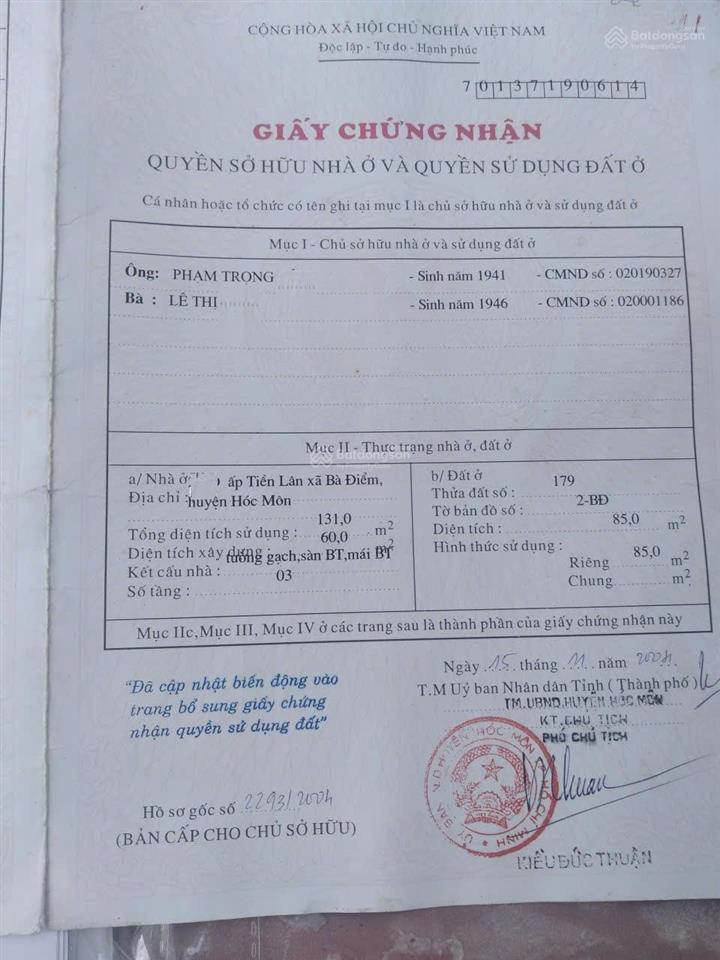 Batdongsan
by PropertyGuru
CỘNG HÒA XÃ HỘI CHỦ NGHĨA VIỆT NAM
Độc lập - Tự do - Hạnh phúc
7 0 1 3 7 1 9 0 6 1 4
GIẤY CHỨNG NHẬN
QUYỀN SỞ HỮU NHÀ Ở VÀ QUYỀN SỬ DỤNG ĐẤT Ở
Cá nhân hoặc tổ chức có tên ghi tại mục I là chủ sở hữu nhà ở và sử dụng đất ở
Mục I - Chủ sở hữu nhà ở và sử dụng đất ở
Ông: PHẠM TRỌNG - Sinh năm 1941 - CMND số : 020190327
Bà : LÊ THỊ - Sinh năm 1946 - CMND số : 020001186
Mục II - Thực trạng nhà ở, đất ở
Batdongsan
a/ Nhà ở
Địa chỉ : ấp Tiền Lân xã Bà Điểm,
huyện Hóc Môn
Tổng diện tích sử dụng : 131,0 m2
Diện tích xây dựng : 60,0 m2
Kết cấu nhà : tường gạch,sàn BT,mái BT
Số tầng : 03
b/ Đất ở
Thửa đất số : 179
Tờ bản đồ số : 2-BĐ
Diện tích : 85,0 m2
Hình thức sử dụng :
Riêng 85,0 m2
Chung m2
Mục IIc,Mục III, Mục IV ở các trang sau là thành phần của giấy chứng nhận này
"Đã cập nhật biến động vào
trang bổ sung giấy chứng
nhận quyền sử dụng đất"
Hồ sơ gốc số 2293/2004
(BẢN CẤP CHO CHỦ SỞ HỮU)
Ngày 15 tháng 11 năm 2004
T.M Uỷ ban Nhân dân Tỉnh ( Thành phố )
TM.UBND.HUYỆN HÓC MÔN
KT.CHỦ TỊCH
PHÓ CHỦ TỊCH
ỦY BAN N.D HUYỆN HÓC MÔN T.P HỒ CHÍ MINH
KIỀU ĐỨC THUẬN